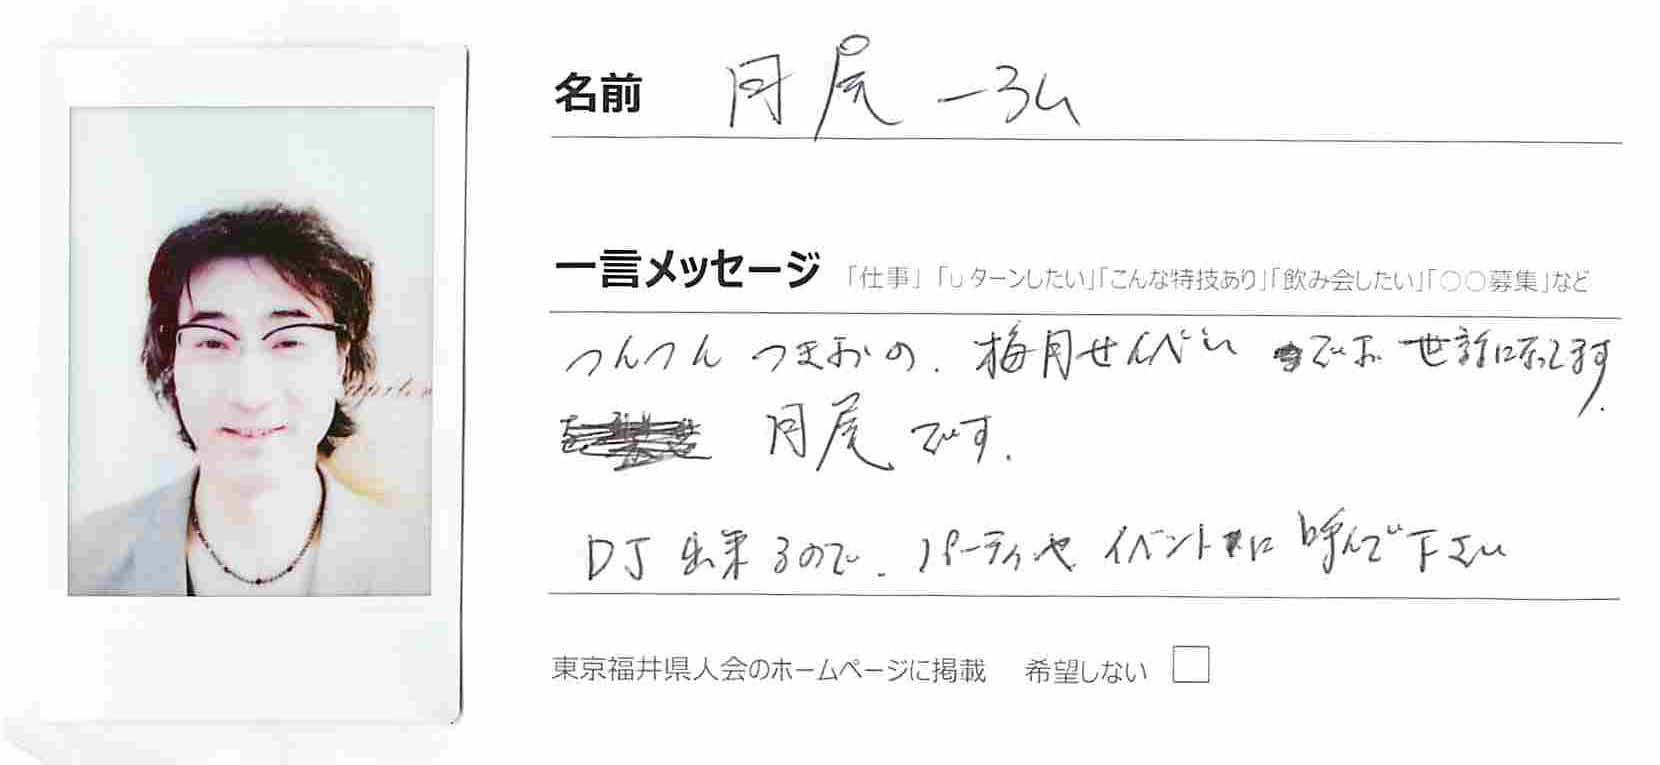 名前 月尾 一ろム
一言メッセージ 「仕事」「Uターンしたい」「こんな特技あり」「飲み会したい」「○○募集」など
つんつん つきおの、梅月せんべい でお世話になってます。
月尾です。
DJ出来るので、パーティや イベントに 呼んで下さい
東京福井県人会のホームページに掲載 希望しない □